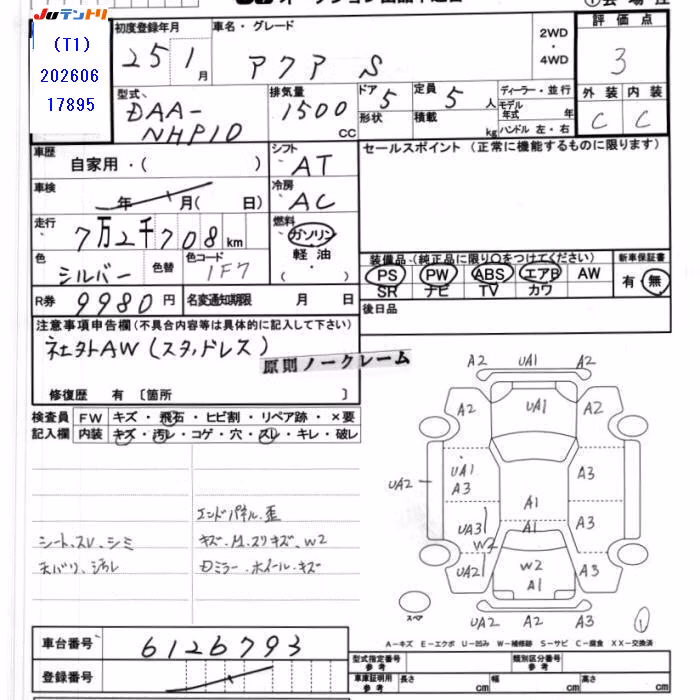 JUテントリ
(T1)
202606
17895
初度登録年月
25 1月
車名・グレード
アクア S
2WD
・
4WD
評価点
3
外装 内装
C C
型式
DAA-
NHP10
排気量
1500
CC
ドア 5
定員 5 人
形状
積載 kg
ディーラー・並行
モデル年式 年
ハンドル 左・右
車歴
自家用・( )
シフト
AT
セールスポイント (正常に機能するものに限ります)
車検
年 月( 日)
冷房
AC
走行
7万2千708km
燃料
ガソリン
軽油
( ・ )
色
シルバー
色替
色コード
1F7
装備品 (純正品に限り○をつけてください)
PS PW ABS エアB AW
SR ナビ TV カワ
新車保証書
有・無
R券 9980円
名変通知期限 月 日
後日品
注意事項申告欄(不具合内容等は具体的に記入して下さい)
社外AW (スタッドレス)
原則ノークレーム
修復歴 有 〔箇所 〕
検査員
記入欄
FW キズ・飛石・ヒビ割・リペア跡・×要
内装 キズ・汚レ・コゲ・穴・スレ・キレ・破レ
エンドパネル歪
シート、スレ、シミ
キズ・M.スリキズ、W2
天バリ、汚レ
Dミラー・ホイールキズ
A2 UA1 A2
A2 UA1 A2
UA1
A3 A3
UA2
A1
UA3 A1 A3
W2
UA2 W2 A3
A1
UA2 A2 A3
スペア
1
A-キズ E-エクボ U-凹み W-補修跡 S-サビ C-腐食 XX-交換済
車台番号 6126793
登録番号
型式指定番号
参考
類別区分番号
参考
車庫証明用
参考
長さ cm 幅 cm 高さ cm